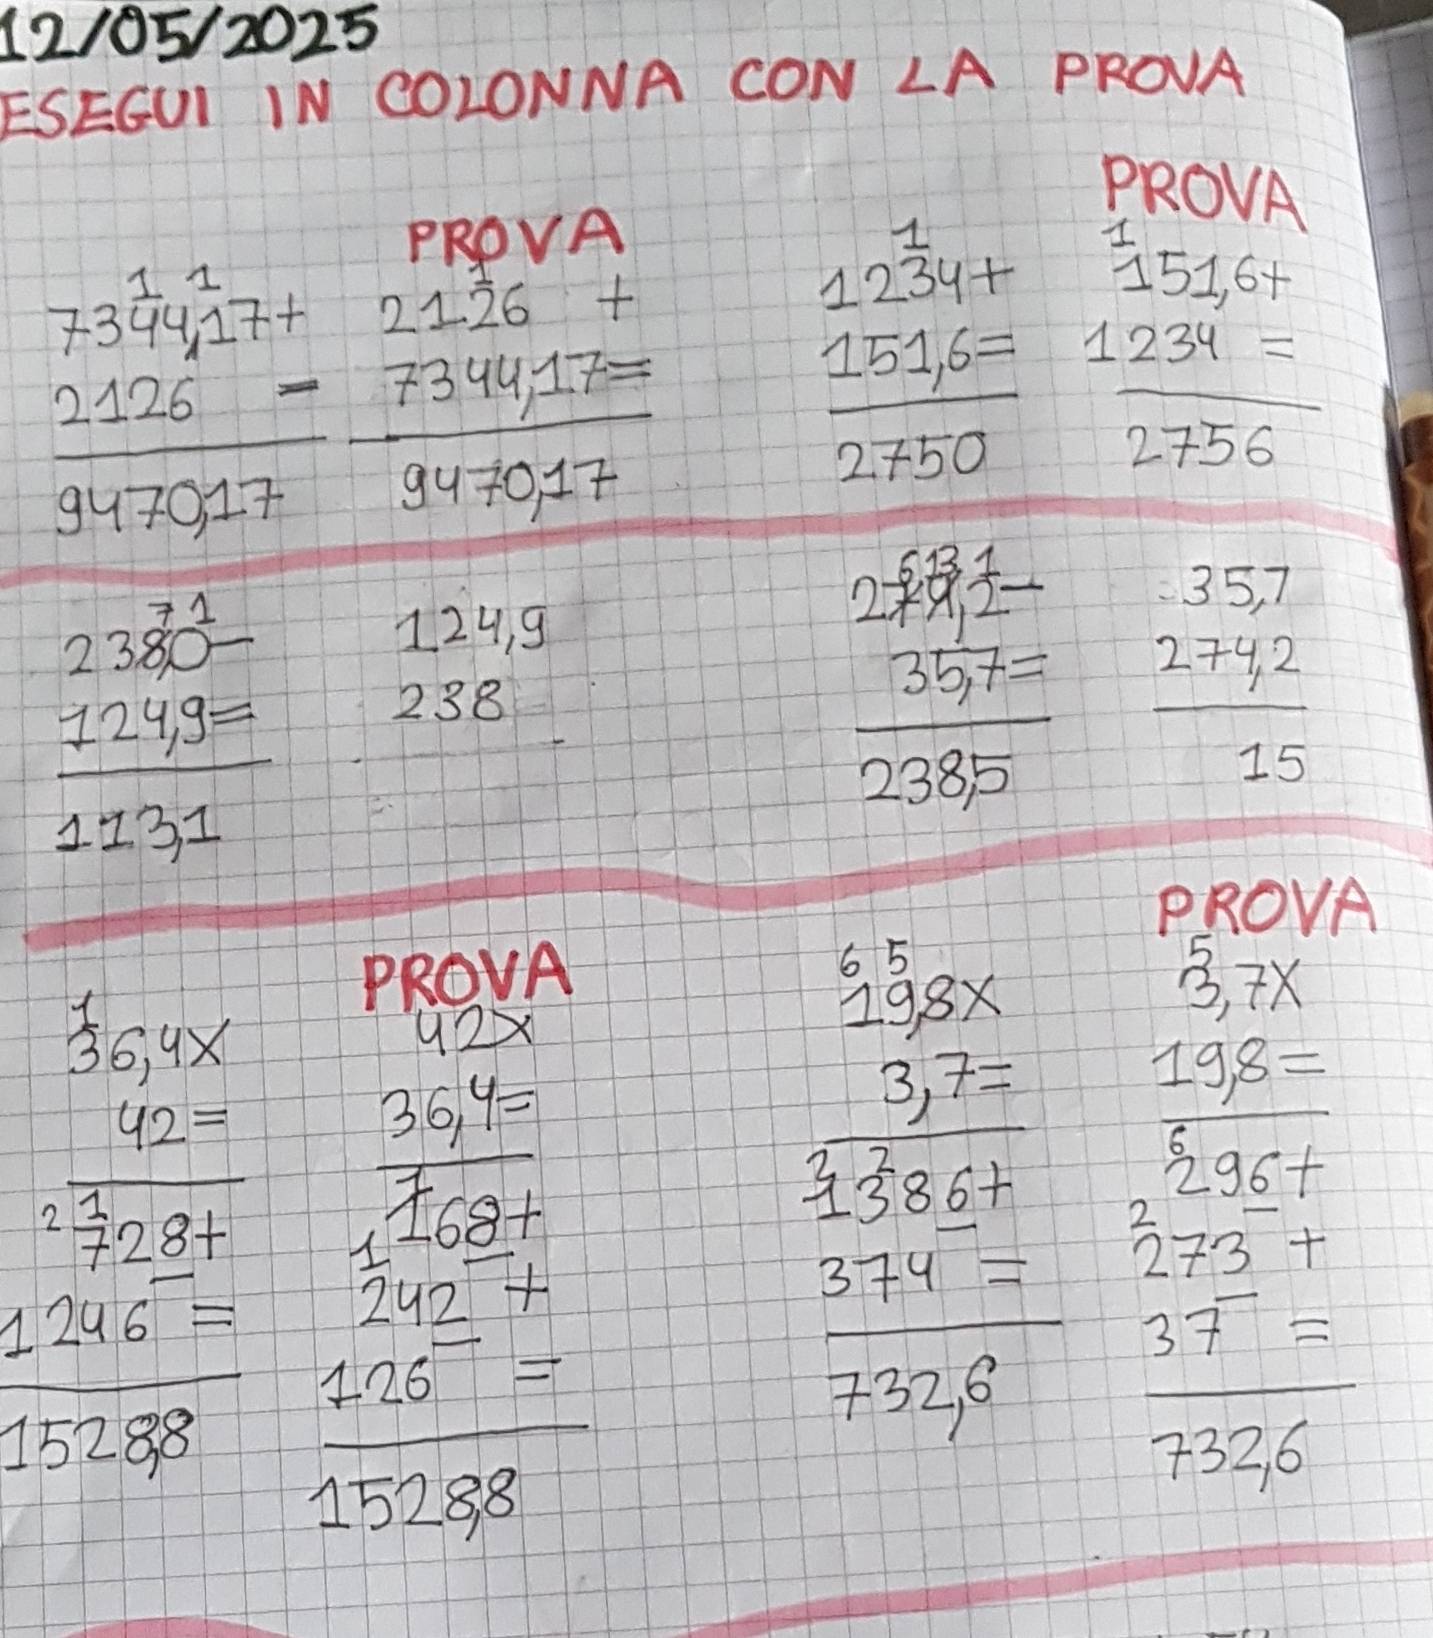 12/05/2025
ESEGUI IN COLONNA CON LA PROVA
PROVA
1 1
7344,17+
2126 =
9470,17
1
2126 +
7344,17=
9470,17
PROVA
1
1234+
151,6=
2750
1
151,6+
1234 =
2756
7 1
238,0-
124,9=
113,1
124,9
238
6 13 1
274,2-
35,7=
238,5
35,7
274,2
15
PROVA
1
36,4X
42=
2 1
728+
1246 =
1528,8
42X
36,4=
1
168+
1
242 +
126 =
1528,8
PROVA
6 5
19,8X
3,7=
2 2
1386+
374 =
732,6
5
3,7X
19,8=
6
296+
2
273 +
37 =
732,6